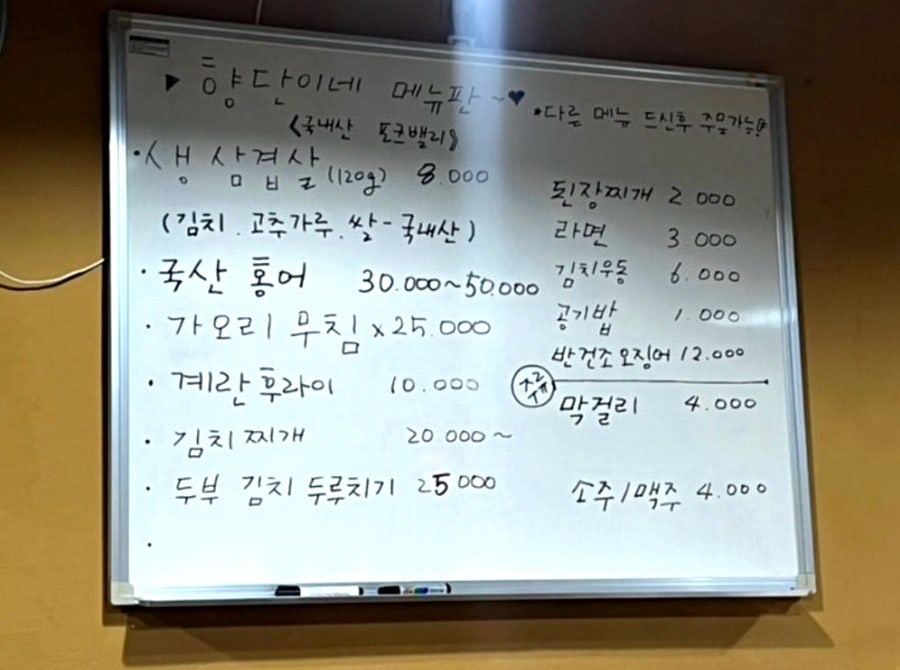 ▶ 향단이네 메뉴판 ~♥
<국내산 포크밸리>
· 생 삼겹살 (120g) 8.000
(김치. 고추가루. 쌀 - 국내산)
· 국산 홍어 30.000~50.000
· 가오리 무침 x 25.000
· 계란후라이 10.000
· 김치찌개 20.000~
· 두부 김치 두루치기 25000
·
*다른 메뉴 드신후 주문가능
된장찌개 2 000
라면 3.000
김치우동 6.000
공기밥 1.000
반건조오징어 12.000
주류
막걸리 4.000
소주/맥주 4.000